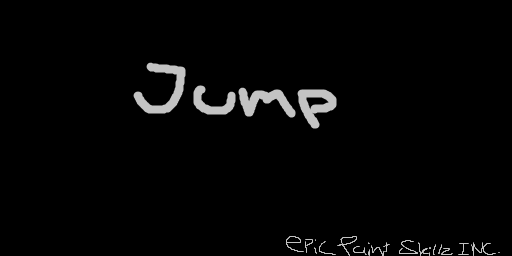 Jump
Epic Paint Skillz INC.